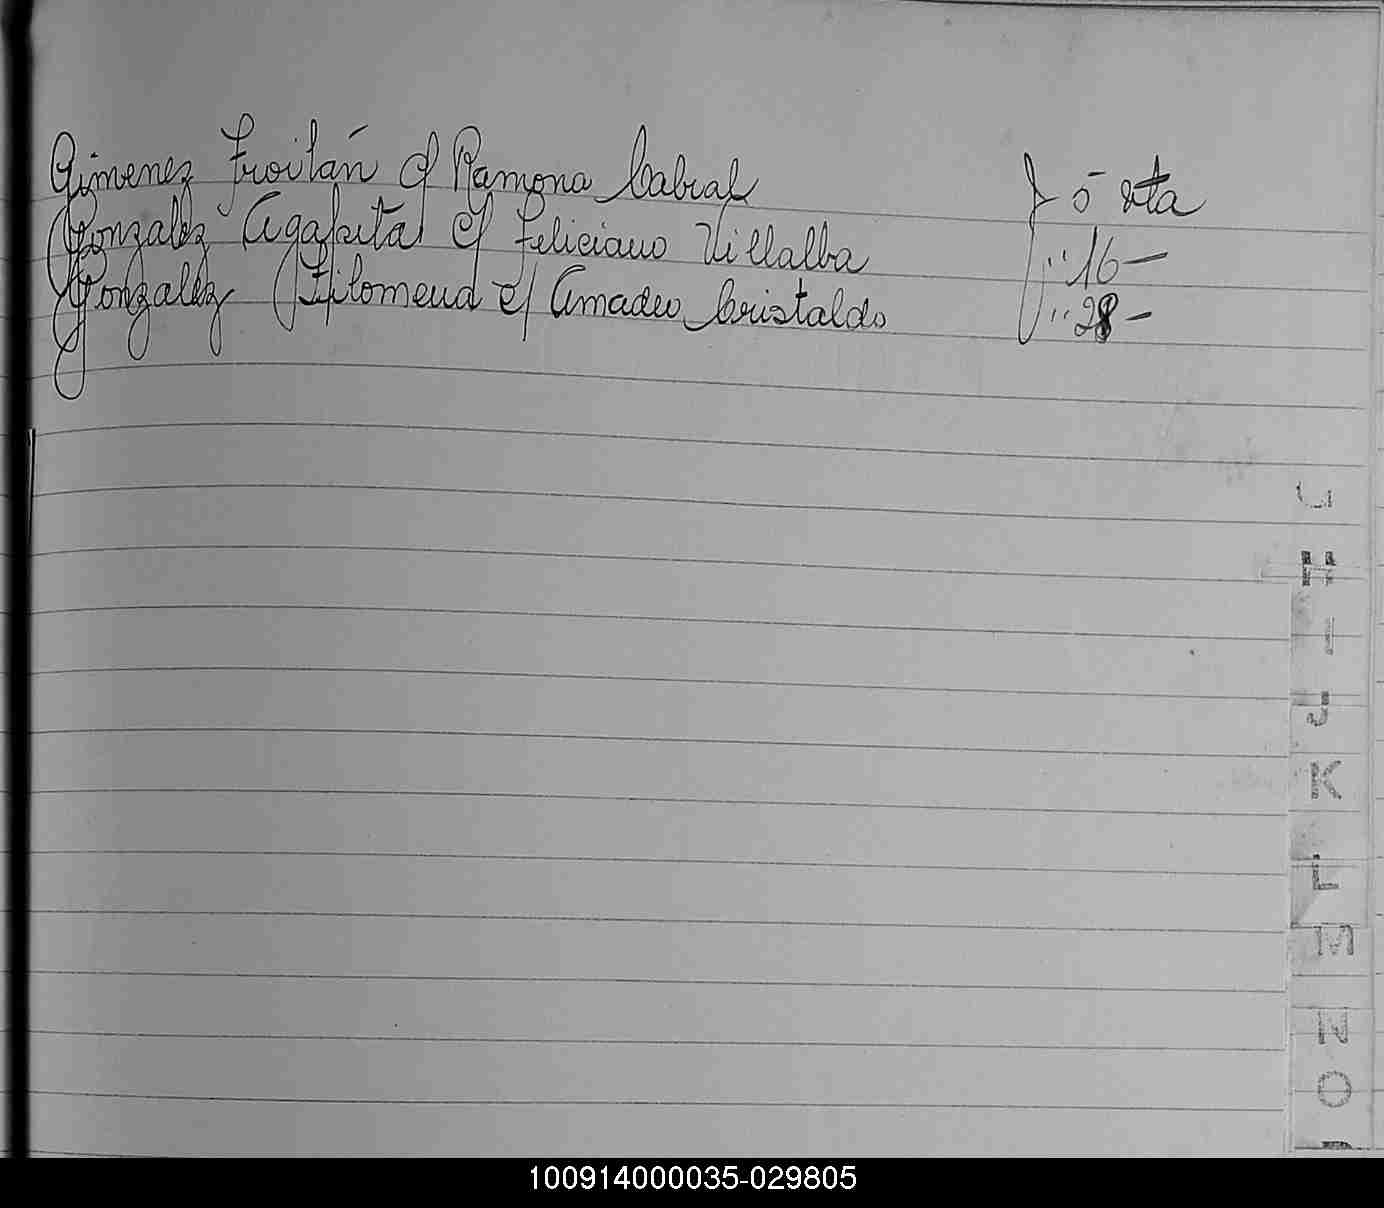 Gimenez Froilán c/ Ramona Cabral F 5 vta
Gonzalez Agapita c/ Feliciano Villalba " 16 —
Gonzalez Filomena c/ Amadeo Cristaldo " 28 —
G
H
I
J
K
L
M
N
O
100914000035-029805